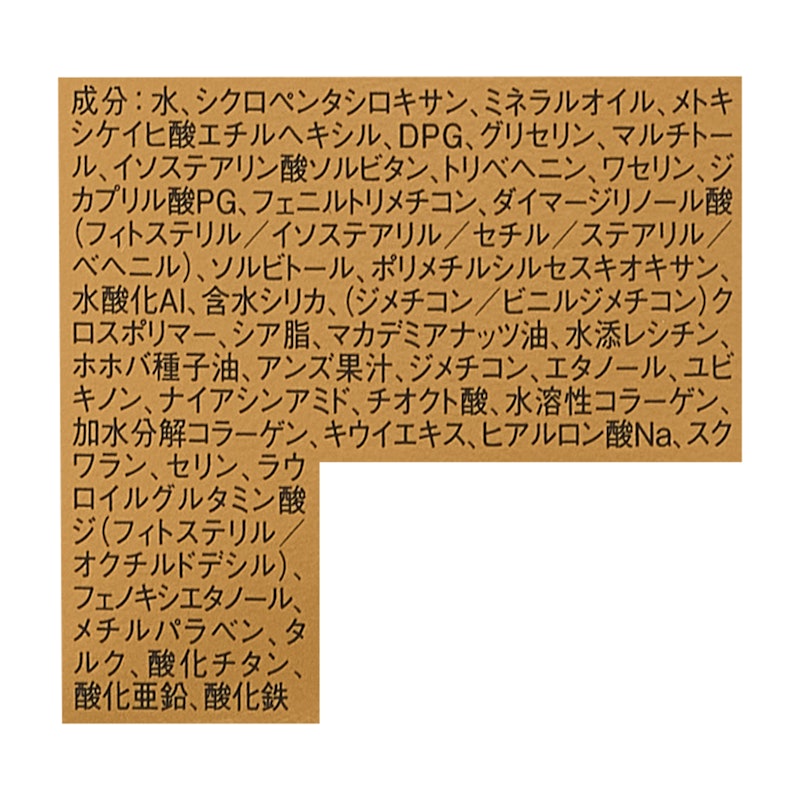 成分：水、シクロペンタシロキサン、ミネラルオイル、メトキ
シケイヒ酸エチルヘキシル、DPG、グリセリン、マルチトー
ル、イソステアリン酸ソルビタン、トリベヘニン、ワセリン、ジ
カプリル酸PG、フェニルトリメチコン、ダイマージリノール酸
（フィトステリル／イソステアリル／セチル／ステアリル／
ベヘニル）、ソルビトール、ポリメチルシルセスキオキサン、
水酸化Al、含水シリカ、（ジメチコン／ビニルジメチコン）ク
ロスポリマー、シア脂、マカデミアナッツ油、水添レシチン、
ホホバ種子油、アンズ果汁、ジメチコン、エタノール、ユビ
キノン、ナイアシンアミド、チオクト酸、水溶性コラーゲン、
加水分解コラーゲン、キウイエキス、ヒアルロン酸Na、スク
ワラン、セリン、ラウ
ロイルグルタミン酸
ジ（フィトステリル／
オクチルドデシル）、
フェノキシエタノール、
メチルパラベン、タ
ルク、酸化チタン、
酸化亜鉛、酸化鉄